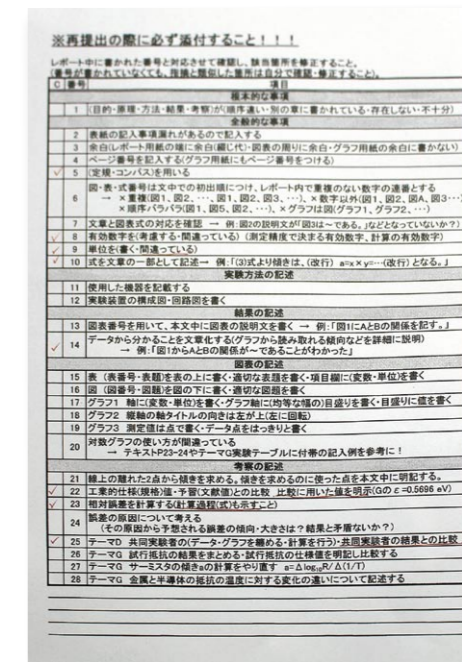 ※再提出の際に必ず添付すること！！！
レポート中に書かれた番号と対応させて確認し、該当箇所を修正すること。
(番号が書かれていなくても、指摘と類似した箇所は自分で確認・修正すること)。
C 番号 項目
根本的な事項
1 (目的・原理・方法・結果・考察)が(順序違い・別の章に書かれている・存在しない・不十分)
全般的な事項
2 表紙の記入事項漏れがあるので記入する
3 余白(レポート用紙の端に余白(綴じ代)・図表の周りに余白・グラフ用紙の余白に書かない)
4 ページ番号を記入する(グラフ用紙にもページ番号をつける)
✓ 5 (定規・コンパス)を用いる
6 図・表・式番号は文中での初出順につけ、レポート内で重複のない数字の連番とする
→ ×重複(図1、図2、…、図1、図2、図3、…)、×数字以外(図1、図2、図A、図3…)
×順序バラバラ(図1、図5、図2、…)、×グラフは図(グラフ1、グラフ2、…)
7 文章と図表式の対応を確認 → 例:図2の説明文が「図3は～である。」などとなっていないか?)
✓ 8 有効数字を(考慮する・間違っている) (測定精度で決まる有効数字、計算の有効数字)
✓ 9 単位を(書く・間違っている)
✓ 10 式を文章の一部として記述→ 例:「(3)式より傾きは、(改行) a=x×y=…(改行)となる。」
実験方法の記述
11 使用した機器を記載する
12 実験装置の構成図・回路図を書く
結果の記述
13 図表番号を用いて、本文中に図表の説明文を書く → 例:「図1にAとBの関係を記す。」
✓ 14 データから分かることを文章化する(グラフから読み取れる傾向などを詳細に説明)
→ 例:「図1からAとBの関係が～であることがわかった」
図表の記述
15 表 (表番号・表題)を表の上に書く・適切な表題を書く・項目欄に(変数・単位)を書く
16 図 (図番号・図題)を図の下に書く・適切な図題を書く
17 グラフ1 軸に(変数・単位)を書く・グラフ軸に(均等な幅の)目盛りを書く・目盛りに値を書く
18 グラフ2 縦軸の軸タイトルの向きは左が上(左に回転)
19 グラフ3 測定値は点で書く・データ点をはっきりと書く
20 対数グラフの使い方が間違っている
→ テキストP23-24やテーマG実験テーブルに付帯の記入例を参考に！
考察の記述
21 線上の離れた2点から傾きを求める。傾きを求めるのに使った点を本文中に明記する。
✓ 22 工業的仕様(規格)値・予習(文献値)との比較 比較に用いた値を明示(Gのε=0.5696 eV)
✓ 23 相対誤差を計算する(計算過程(式)も示すこと)
24 誤差の原因について考える
(その原因から予想される誤差の傾向・大きさは?結果と矛盾ないか?)
✓ 25 テーマD 共同実験者の(データ・グラフを纏める・計算を行う)・共同実験者の結果との比較
26 テーマG 試行抵抗の結果をまとめる・試行抵抗の仕様値を明記し比較する
27 テーマG サーミスタの傾きaの計算をやり直す a=Δlog₁₀R/Δ(1/T)
28 テーマG 金属と半導体の抵抗の温度に対する変化の違いについて記述する